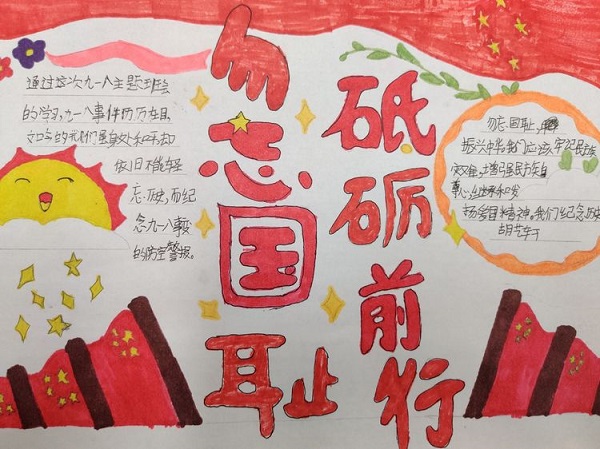 勿忘国耻
砥砺前行
通过这次九一八主题班会
的学习,九一八事件历历在目,
如今的我们
依旧不能轻
忘历史,而纪
念九一八事变
的防空警报。
勿忘国耻,
振兴中华我们应该牢记民族
增强民族自
扬爱国精神,我们纪念历史